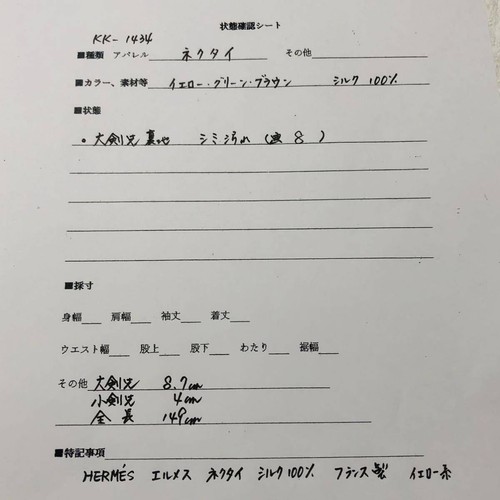 状態確認シート
KK-1434
■種類 アパレル ネクタイ その他
■カラー、素材等 イエロー・グリーン・ブラウン シルク 100%
■状態
・大剣先 裏地 シミ汚れ ( 8 )
■採寸
身幅 肩幅 袖丈 着丈
ウエスト幅 股上 股下 わたり 裾幅
その他 大剣先 8.7cm
小剣先 4cm
全長 149cm
■特記事項
HERMÈS エルメス ネクタイ シルク100% フランス製 イエロー系